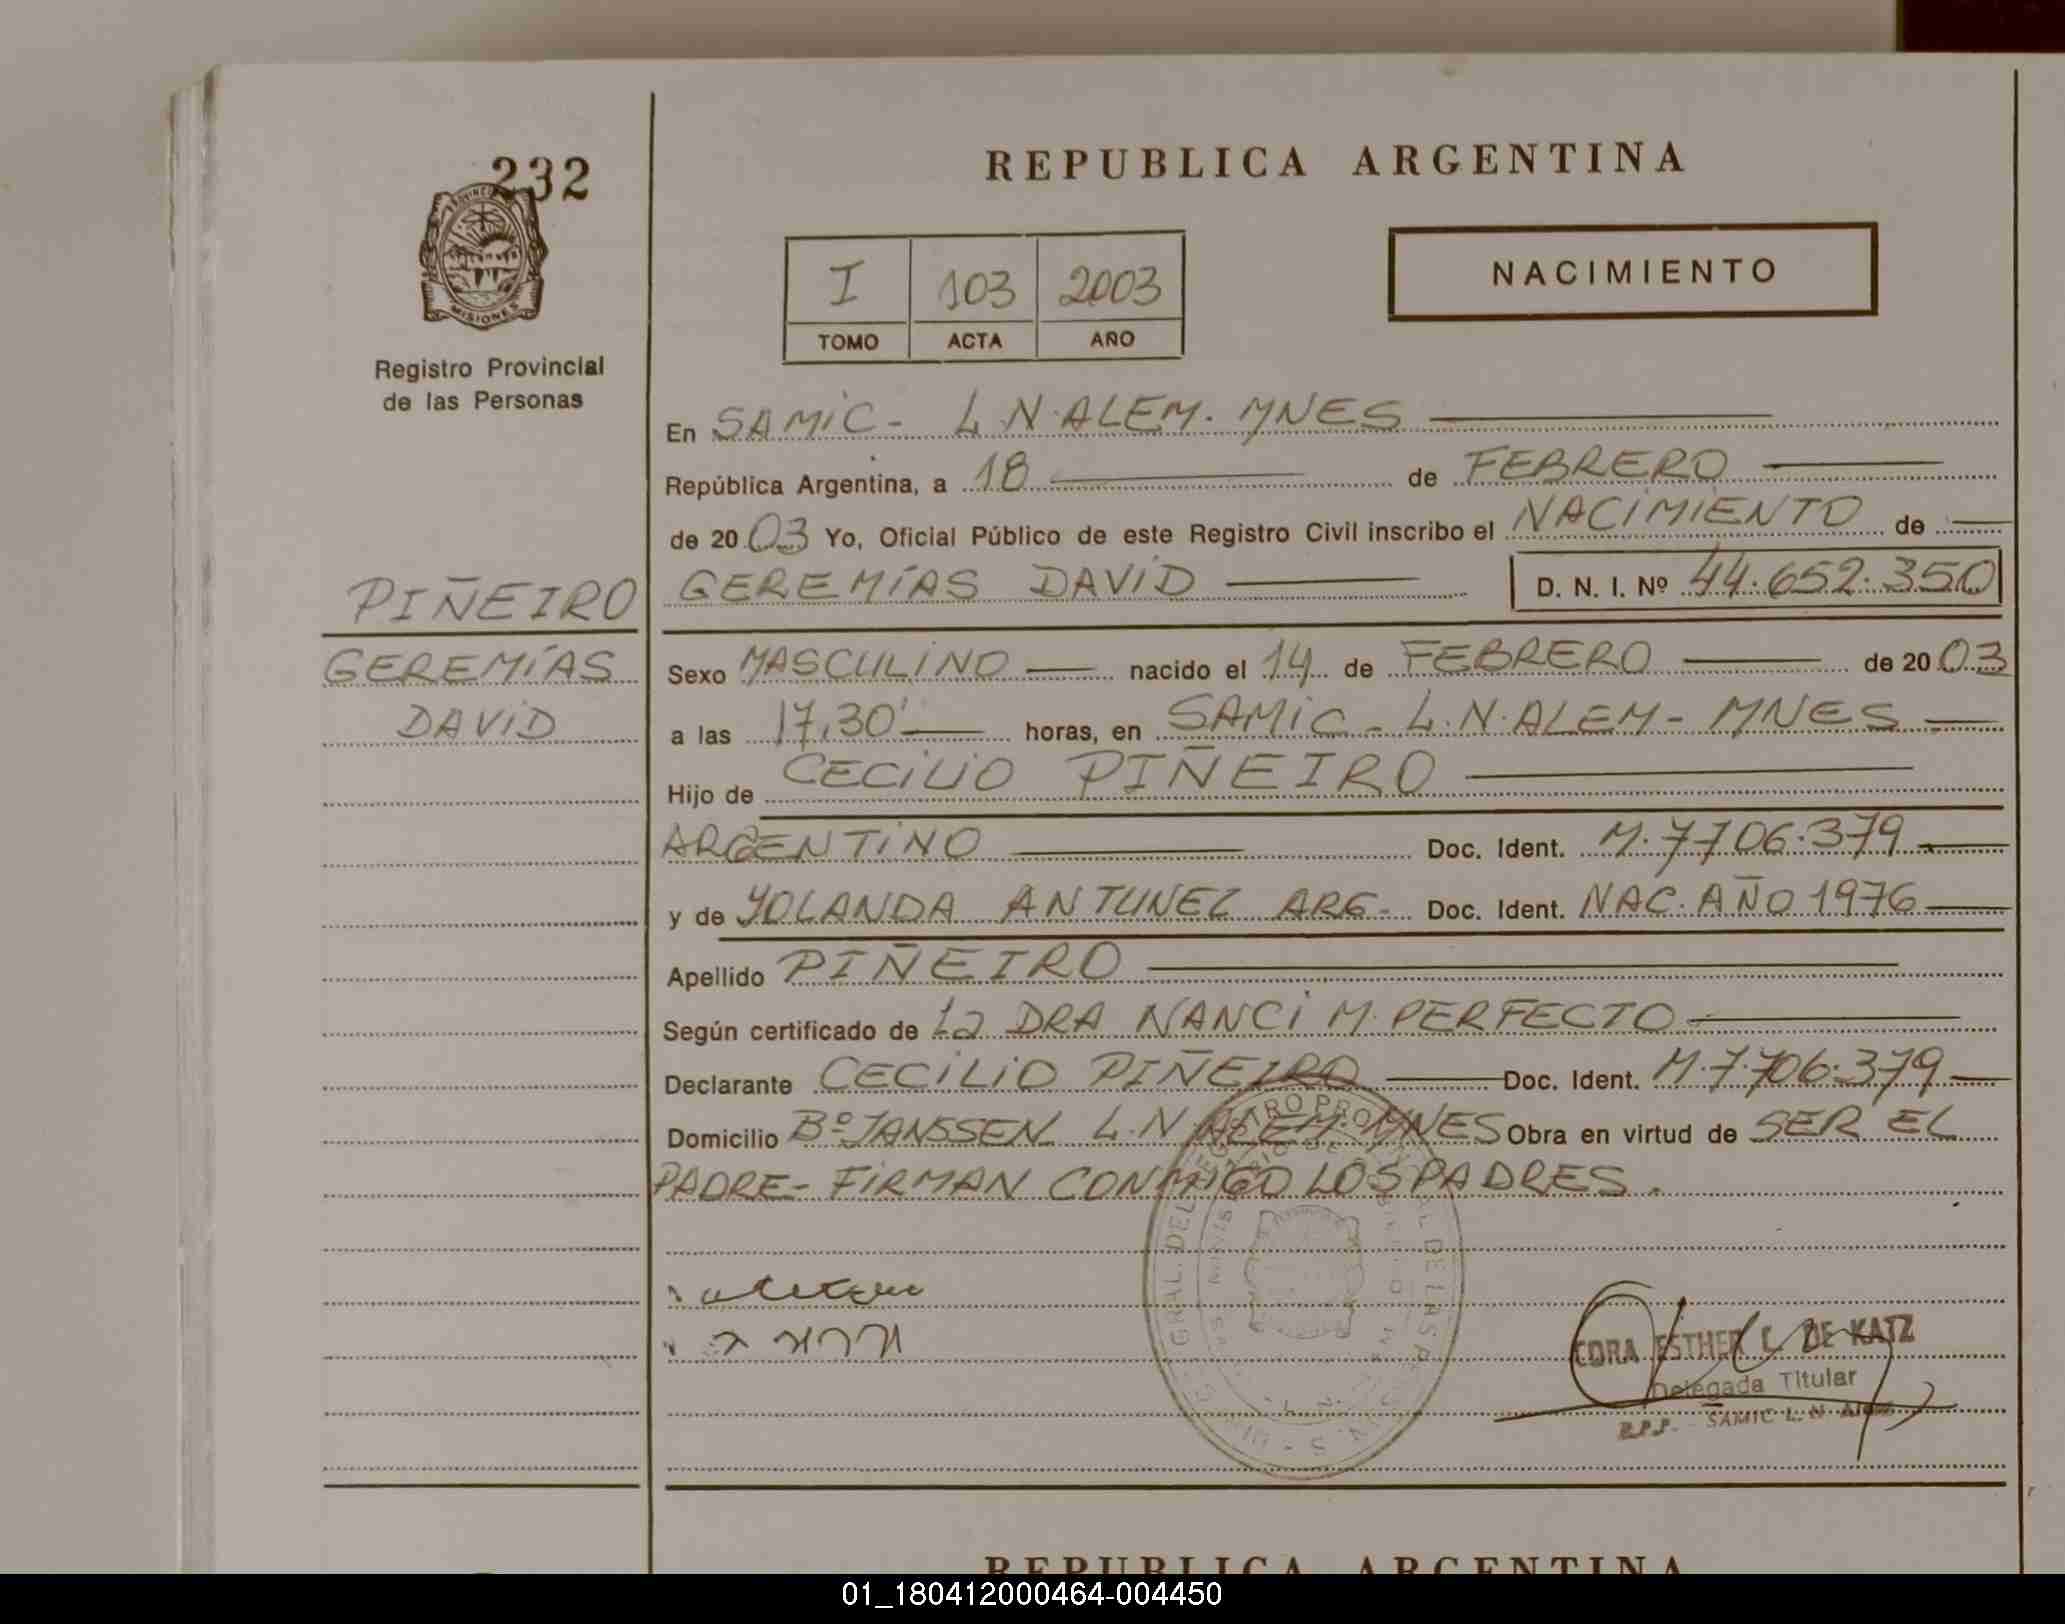 232
PROVINCIA
MISIONES
Registro Provincial
de las Personas
REPUBLICA ARGENTINA
I 103 2003
TOMO ACTA AÑO
NACIMIENTO
En SAMIC - L.N. ALEM. MNES
República Argentina, a 18 de FEBRERO
de 2003 Yo, Oficial Público de este Registro Civil inscribo el NACIMIENTO de
PIÑEIRO GEREMÍAS DAVID D. N. I. Nº 44.652.350
GEREMÍAS Sexo MASCULINO nacido el 14 de FEBRERO de 2003
DAVID a las 17,30' horas, en SAMIC - L.N. ALEM - MNES
Hijo de CECILIO PIÑEIRO
ARGENTINO Doc. Ident. M. 7706.379
y de YOLANDA ANTUNEZ ARG- Doc. Ident. NAC. AÑO 1976
Apellido PIÑEIRO
Según certificado de La DRA NANCI M. PERFECTO
Declarante CECILIO PIÑEIRO Doc. Ident. M. 7.706.379
Domicilio Bº JANSSEN L.N ALEM. MNES Obra en virtud de SER EL
PADRE- FIRMAN CONMIGO LOS PADRES.
CORA ESTHER L. DE KATZ
Delegada Titular
R.P.P. - SAMIC L. N. Alem
REPUBLICA ARGENTINA
01_180412000464-004450